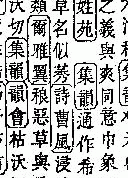 之義與爽同意巾象
姓苑集韻通作希
草名似莠詩曹風浸
類爾雅翼稂惡草與
沃切集韻韻會枯沃